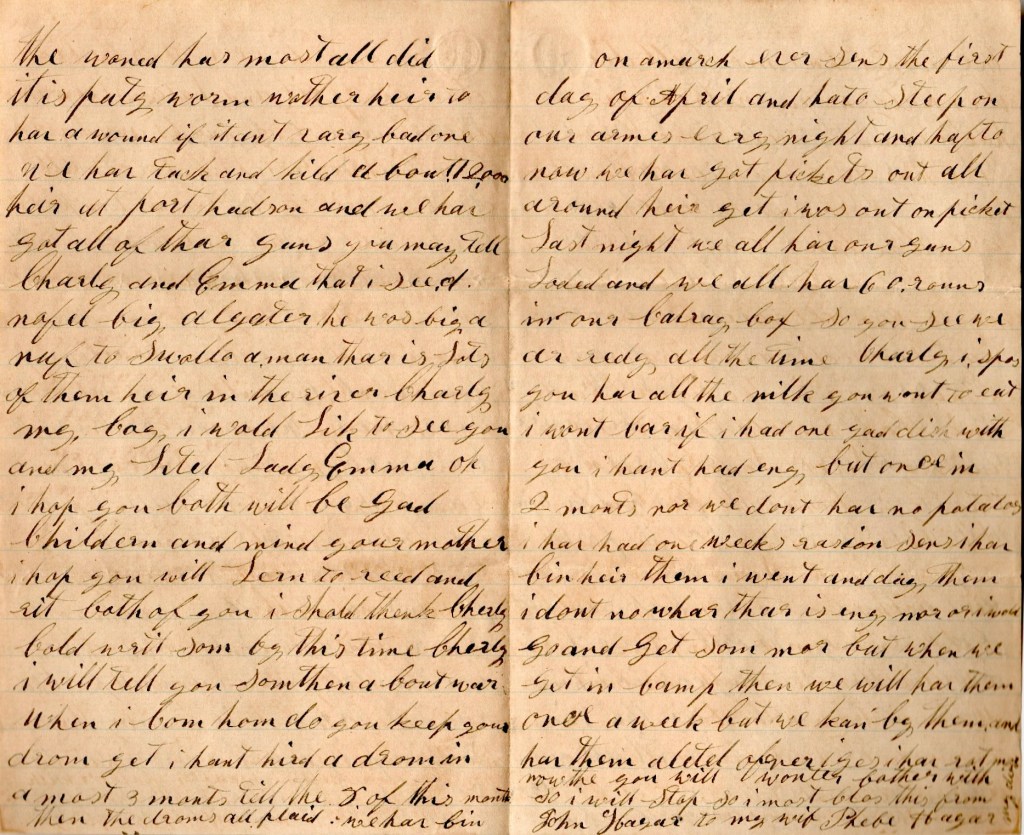 the woned has most all did
it is puty worm wather heir to
har a wound if it ant rary bad one
we har tack and kild a bout 12,000
heir at port hudson and we har
got all of thar guns you may tell
Charly and Emma that i see,d.
big algater he was big a
nuf to Swollo a man thar is Lots
of them heir in the river Charly
my, boy, i wold Lik to see you
and my Litel Lady Emma oh
i hop you both will be Gad
Childern and mind your mother
i hop you will Lern to reed and
rit both of you i shold thenk Charly
Cold writ som by this time Charly
i will tell you somthen a bout war
when i Com hom do you keep your
drom yet i hant hird a drom in
a most 3 monts till the 8 of this month
then the droms all plaid : we har bin
on a march ever sens the first
day of April and hato Sleep on
our armes every night and hafto
now we har got pickets out all
around heir yet i was out on picket
Last night we all har our guns
Loded and we all har 60, rouns
in our Catrag box so you see we
ar redy all the time Charly i, spos
you har all the milk you wont to eat
i wont car if i had one gad dish with
you i hant had eny but once in
2 monts nor we dont har no potatos
i har had one weeks rasion sens i har
bin heir them i went and dag, them
i dont no whar thar is eny mor or i wold
go and Get som mor but when we
get in Camp then we will har them
once a week but we kan by them, and
har them a letel i har rot
now the you will wonter bother with
so i will stop so i most clos this from
John Hagar to my wif Phebe Hagar